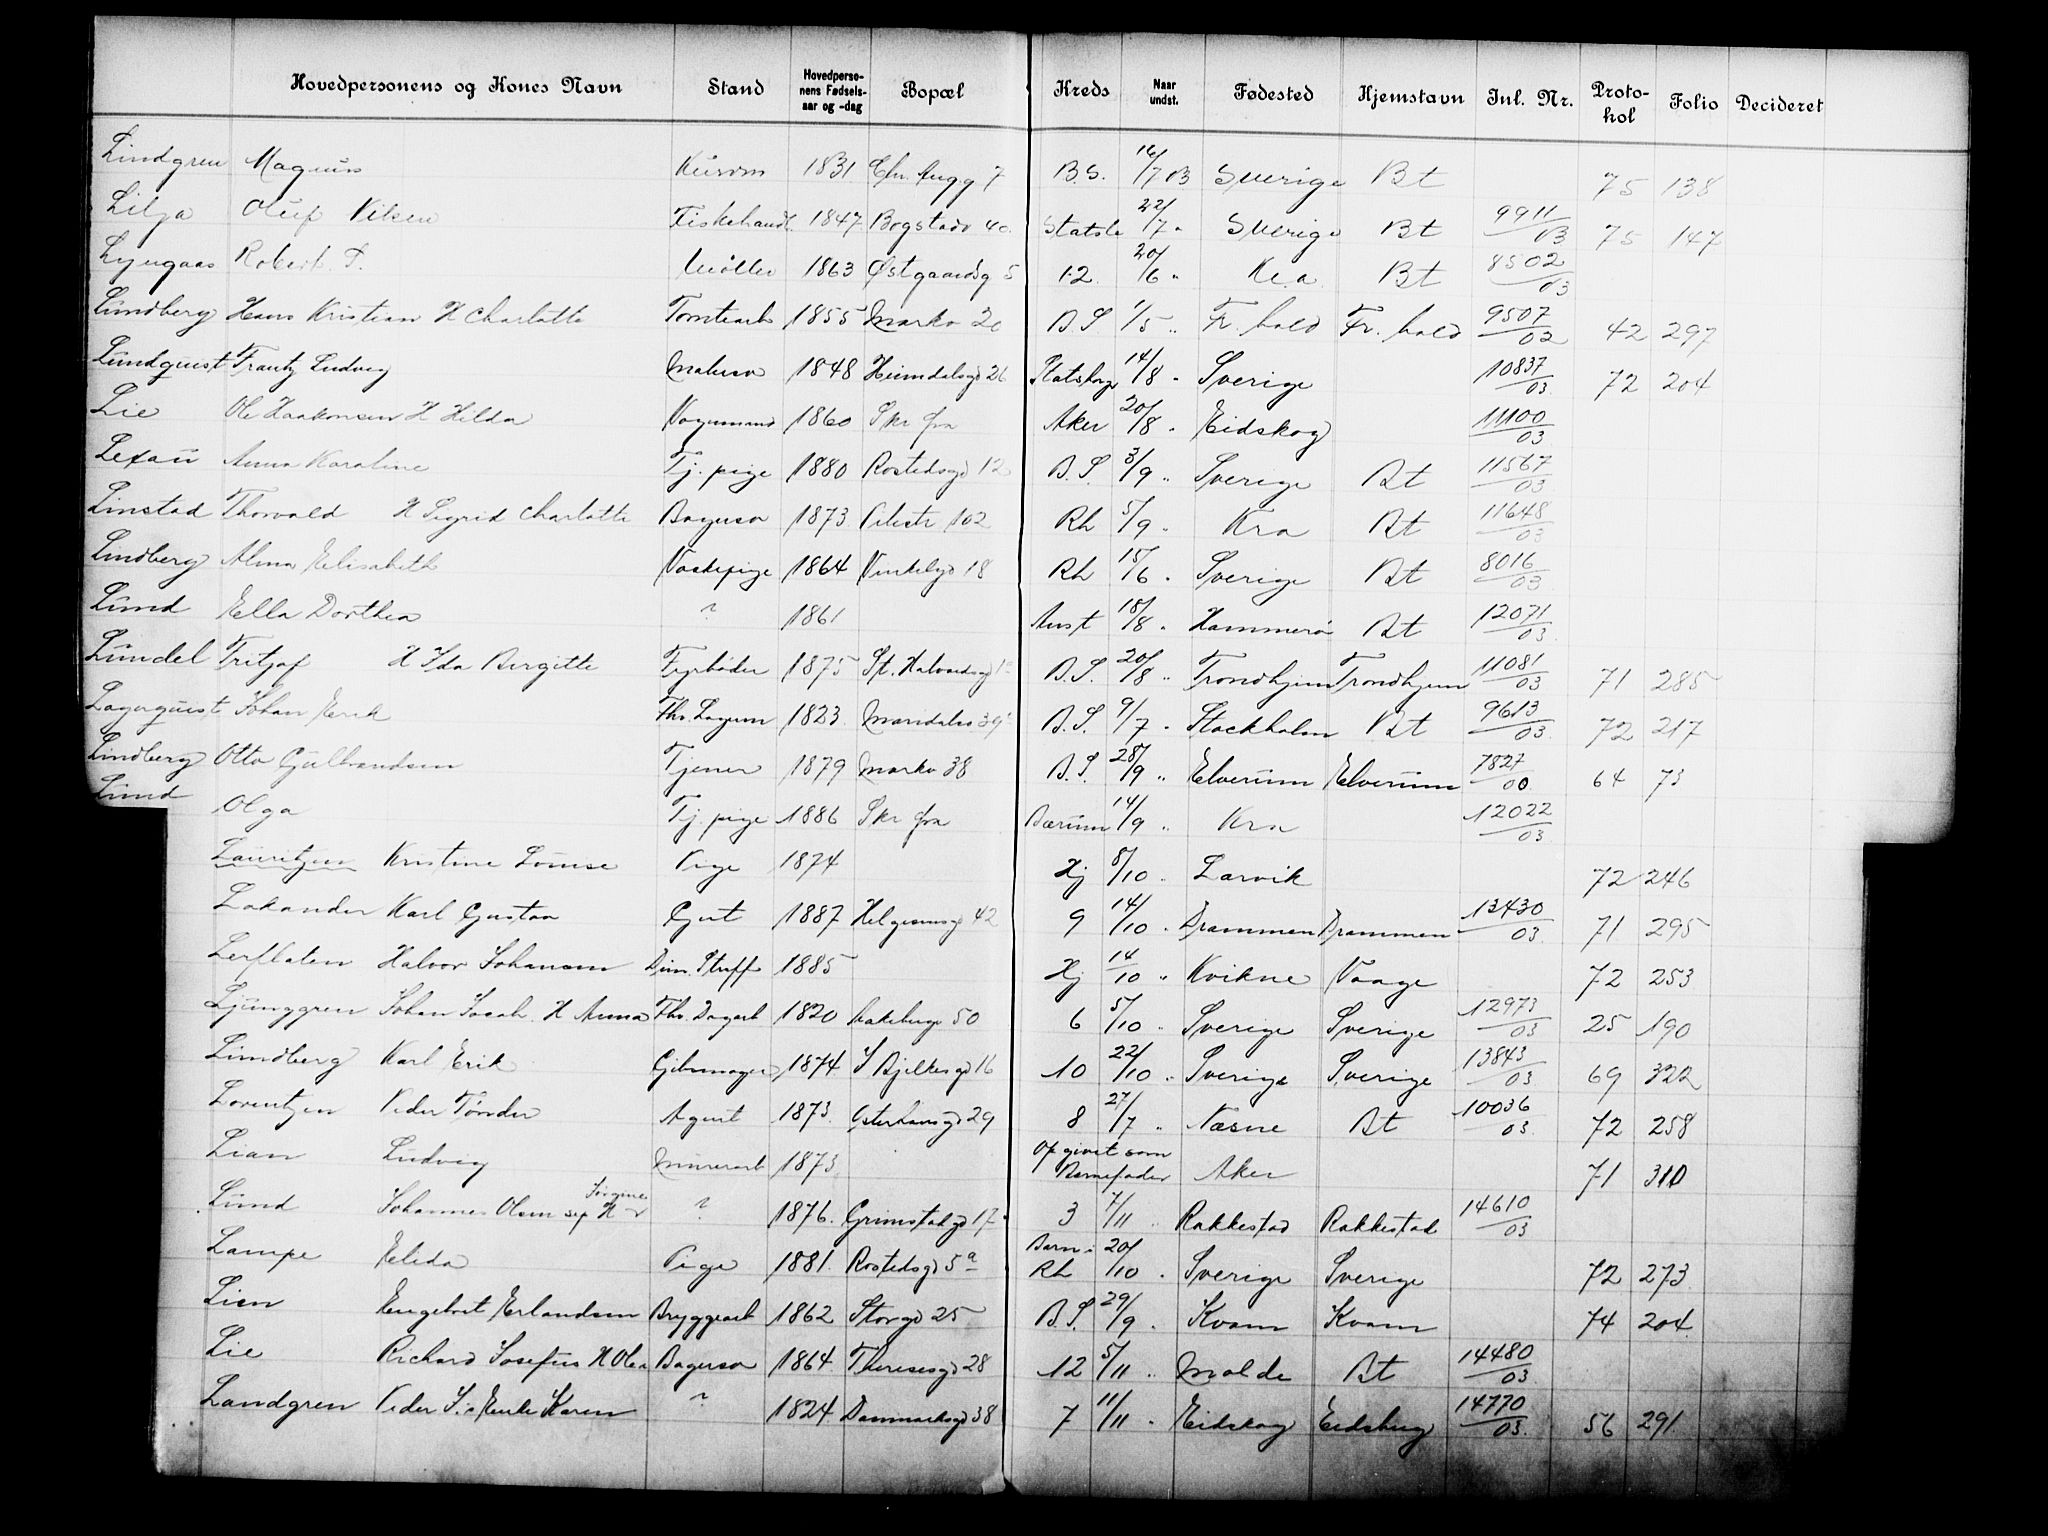 Hovedpersonens og Kones Navn Stand Hovedperso-nens Fødsels-aar og -dag Bopæl Kreds Naar undst. Fødested Hjemstavn Inl. Nr. Proto-kol Folio Decideret
Lindgren Magnus 1831 7 B.S. 16/7 03 Sverige Bt 75 138
Lilja Oluf Nilsen Fiskehandl. 1847 Bogstadv 40 Statsb 22/7 " Sverige Bt 9911/03 75 147
Lyngaas Robert. P. Møller 1863 Østgaardsg 5 12 20/6 " Kra Bt 8502/03
Lundberg Hans Kristian H Charlotte Tomtearb 1855 Markv 20 B S 1/5 " Fr. hald Fr. hald 9507/02 42 297
Lundquist Frantz Ludvig Malersv 1848 Heimdalsgd 26 14/8 " Sverige 10837/03 72 204
Lie Ole Haakonsen H Hilda Vognmand 1860 Skr fra Aker 20/8 " Eidskog 11100/03
Lexau Anna Karoline Tj. pige 1880 Rostedsgd 12 B. S. 3/9 " Sverige Bt 11567/03
Linstad Thorvald H Sigrid Charlotte Bagersv 1873 Pilestr 102 Rh 5/9 " Kra Bt 11648/03
Lindberg Alma Elisabeth Vaskepige 1864 Vinkelgd 18 Rh 15/6 " Sverige Bt 8016/03
Lund Ella Dorthea ? 1861 Aust 18/8 " Hammerø Bt 12071/03
Lundel Fritjof H Ida Birgitte Fyrbøder 1875 St. Halvardsgd 1 B. S. 20/8 " Trondhjem Trondhjem 11081/03 71 285
Lagerquist Johan Erik Fhv. Lagerm 1823 Maridalsv 39 B. S. 9/7 " Stockholm Bt 9613/03 72 217
Lindberg Otto Gulbrandsen Tjener 1879 Markv 38 B. S. 28/9 " Elverum Elverum 7827/00 64 73
Lund Olga Tj. pige 1886 Skr fra Bærum 14/9 " Kra 12022/03
Lauritzen Kristine Louise Pige 1874 Hj 8/10 " Larvik 72 246
Lakander Karl Gustav Gut 1887 Helgesensgd 42 9 14/10 " Drammen Drammen 13430/03 71 295
Lerflaten Halvor Johansen Dim. Straff 1885 Hj 14/10 " Kvikne Vaage 72 253
Ljunggren Johan Jacob. H Anna Fhv. Dagarb 1820 Akebergv 50 6 5/10 " Sverige Sverige 12973/03 25 190
Lindberg Karl Erik Gjibsmager 1874 J Bjelkesgd 16 10 22/10 " Sverige Sverige 13843/03 69 322
Lorentzen Peder Tønder Agent 1873 Osterhausgd 29 8 27/7 " Næsne Bt 10036/03 72 258
Lian Ludvig Murerarb 1873 Opgivet som Barnefader Aker 71 310
Lund Johannes Olsen sep H Jørgine ? 1876. Grimstadgd 17 3 7/11 " Rakkestad Rakkestad 14610/03
Lampe Elida Pige 1881. Rostedsgd 5a Barn i Rh 20/10 " Sverige Sverige 72 273
Lien Engebret Erlandsen Bryggearb 1862 Storgd 25 B. S. 29/9 " Kvam Kvam 74 204
Lie Richard Josefus H Olea Bagersv 1864 Theresesgd 28 12 5/11 " Molde Bt 14480/03
Landgren Peder S.s Enke Karen ? 1824 Danmarksgd 38 7 11/11 " Eidskog Eidskog 14770/03. 56 291